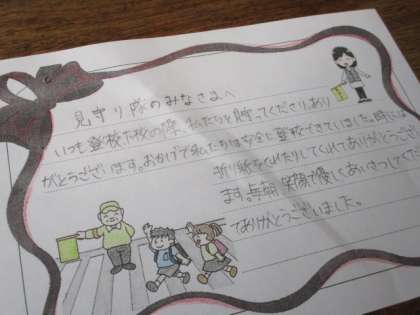 見守り隊のみなさまへ
いつも登校下校の際、私たちを見守ってくださり、あり
がとうございます。おかげで私たちは安全に登校できていました。時には
折り紙をくれたりしてくれてありがとうござい
ます。毎朝笑顔で優しくあいさつしてくださっ
てありがとうございました。